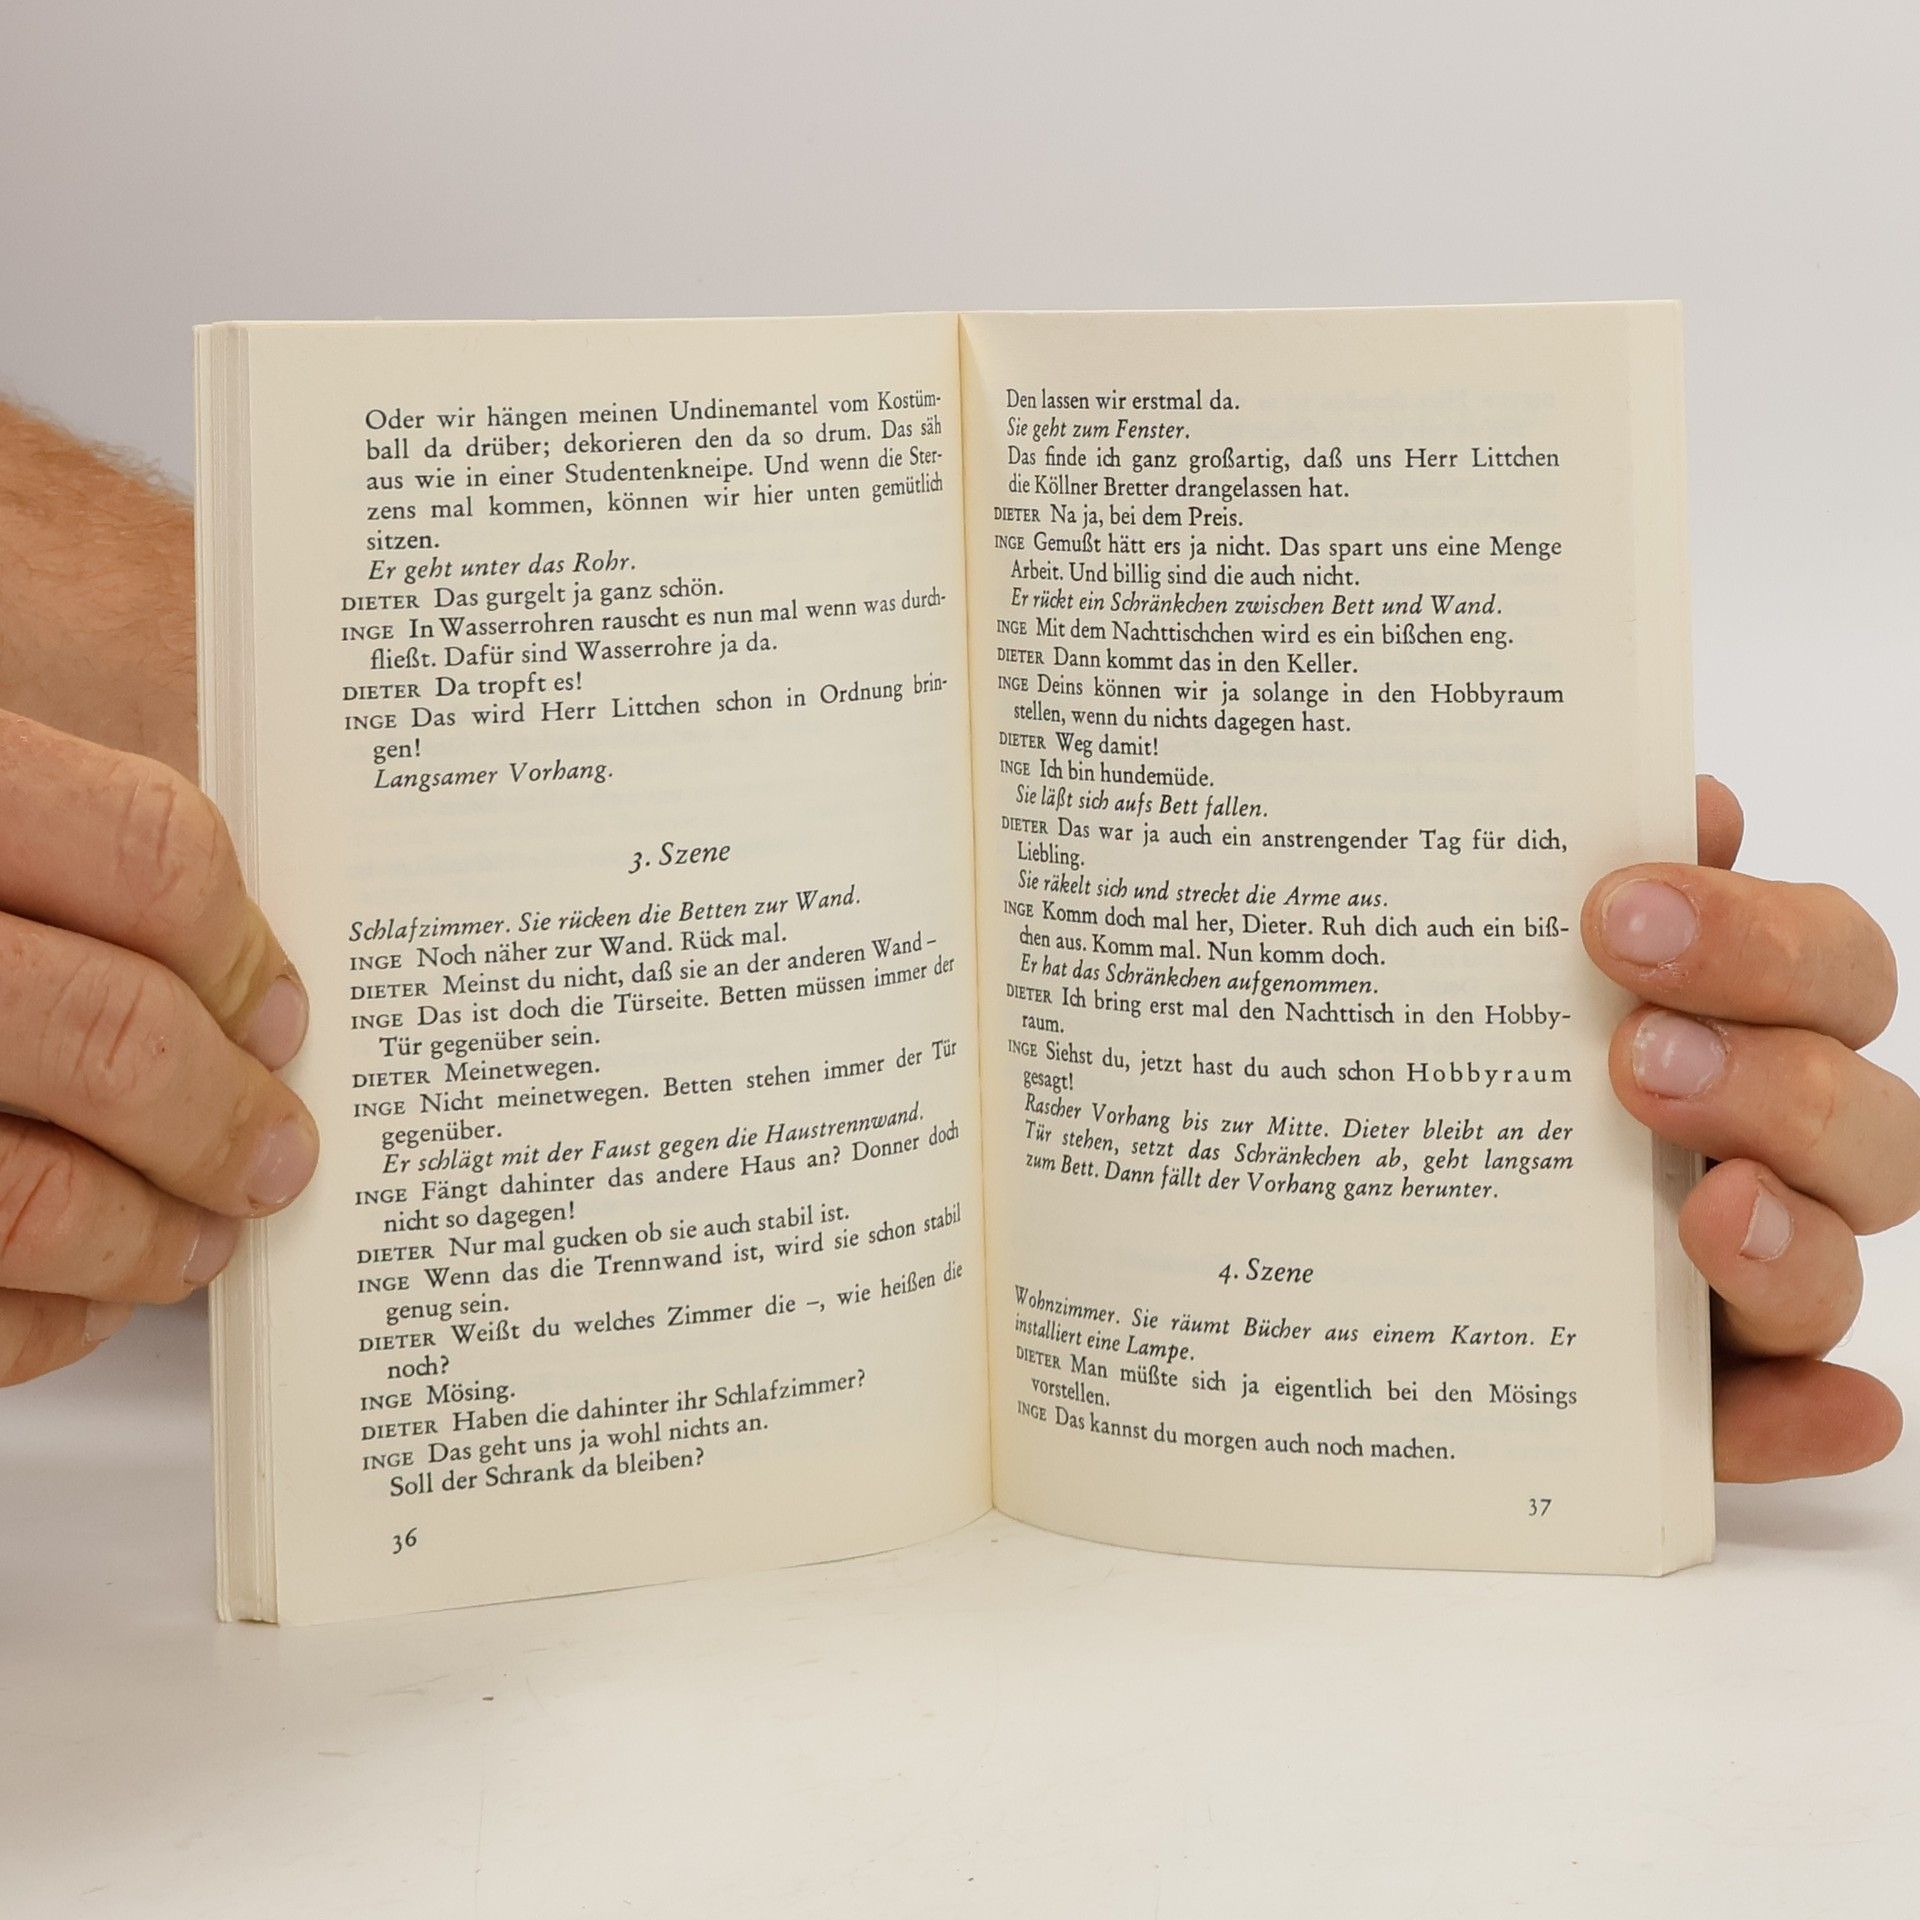 Oder wir hängen meinen Undinemantel vom Kostüm-
ball da drüber; dekorieren den da so drum. Das säh
aus wie in einer Studentenkneipe. Und wenn die Ster-
zens mal kommen, können wir hier unten gemütlich
sitzen.
Er geht unter das Rohr.
DIETER Das gurgelt ja ganz schön.
INGE In Wasserrohren rauscht es nun mal wenn was durch-
fließt. Dafür sind Wasserrohre ja da.
DIETER Da tropft es!
INGE Das wird Herr Littchen schon in Ordnung brin-
gen!
Langsamer Vorhang.
3. Szene
Schlafzimmer. Sie rücken die Betten zur Wand.
INGE Noch näher zur Wand. Rück mal.
DIETER Meinst du nicht, daß sie an der anderen Wand –
INGE Das ist doch die Türseite. Betten müssen immer der
Tür gegenüber sein.
DIETER Meinetwegen.
INGE Nicht meinetwegen. Betten stehen immer der Tür
gegenüber.
Er schlägt mit der Faust gegen die Haustrennwand.
INGE Fängt dahinter das andere Haus an? Donner doch
nicht so dagegen!
DIETER Nur mal gucken ob sie auch stabil ist.
INGE Wenn das die Trennwand ist, wird sie schon stabil
genug sein.
DIETER Weißt du welches Zimmer die –, wie heißen die
noch?
INGE Mösing.
DIETER Haben die dahinter ihr Schlafzimmer?
INGE Das geht uns ja wohl nichts an.
Soll der Schrank da bleiben?
36
Den lassen wir erstmal da.
Sie geht zum Fenster.
Das finde ich ganz großartig, daß uns Herr Littchen
die Köllner Bretter drangelassen hat.
DIETER Na ja, bei dem Preis.
INGE Gemußt hätt ers ja nicht. Das spart uns eine Menge
Arbeit. Und billig sind die auch nicht.
Er rückt ein Schränkchen zwischen Bett und Wand.
INGE Mit dem Nachttischchen wird es ein bißchen eng.
DIETER Dann kommt das in den Keller.
INGE Deins können wir ja solange in den Hobbyraum
stellen, wenn du nichts dagegen hast.
DIETER Weg damit!
INGE Ich bin hundemüde.
Sie läßt sich aufs Bett fallen.
DIETER Das war ja auch ein anstrengender Tag für dich,
Liebling.
Sie räkelt sich und streckt die Arme aus.
INGE Komm doch mal her, Dieter. Ruh dich auch ein biß-
chen aus. Komm mal. Nun komm doch.
Er hat das Schränkchen aufgenommen.
DIETER Ich bring erst mal den Nachttisch in den Hobby-
raum.
INGE Siehst du, jetzt hast du auch schon Hobbyraum
gesagt!
Rascher Vorhang bis zur Mitte. Dieter bleibt an der
Tür stehen, setzt das Schränkchen ab, geht langsam
zum Bett. Dann fällt der Vorhang ganz herunter.
4. Szene
Wohnzimmer. Sie räumt Bücher aus einem Karton. Er
installiert eine Lampe.
DIETER Man müßte sich ja eigentlich bei den Mösings
vorstellen.
INGE Das kannst du morgen auch noch machen.
37